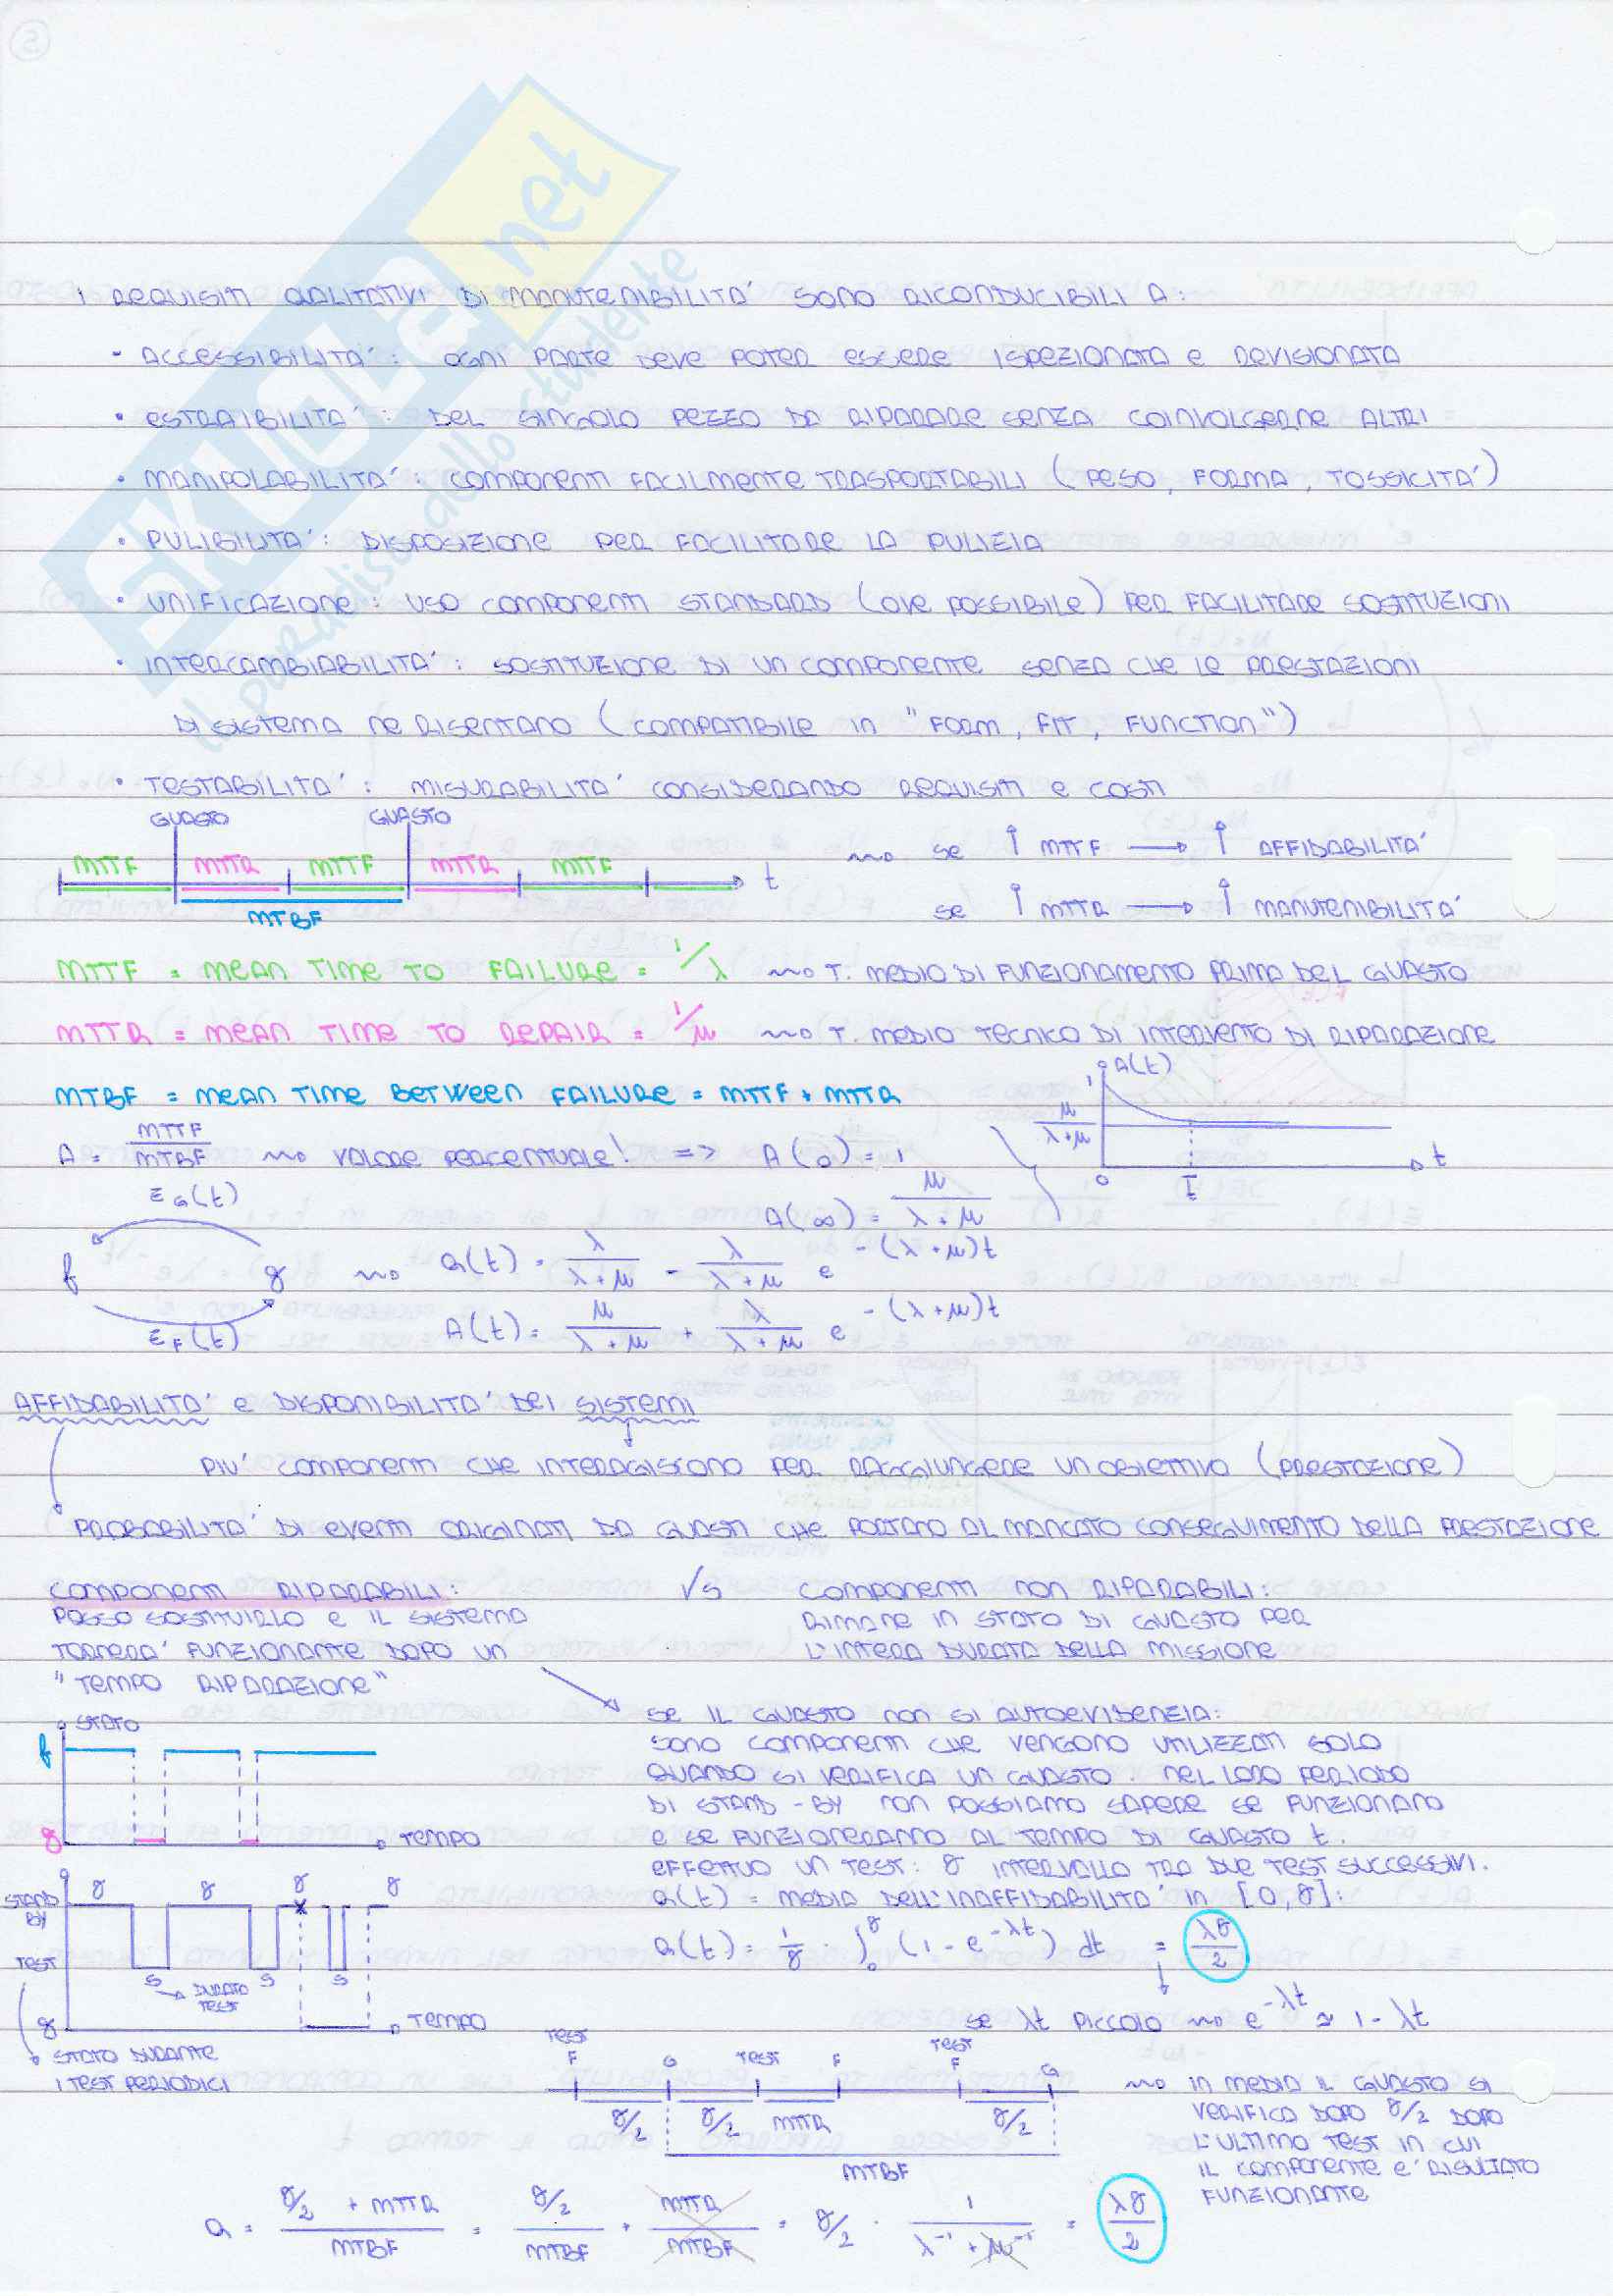 I REQUISITI QALITATIVI DI MANUTENIBILITA' SONO RICONDUCIBILI A:
- ACCESSIBILITA': OGNI PARTE DEVE POTER ESSERE ISPEZIONATA E REVISIONATA
• ESTRAIBILITA': DEL SINGOLO PEZZO DA RIPARARE SENZA COINVOLGERNE ALTRI
• MANIPOLABILITA': COMPONENTI FACILMENTE TRASPORTABILI (PESO, FORMA, TOSSICITA')
• PULIBILITA': DISPOSIZIONE PER FACILITARE LA PULIZIA
• UNIFICAZIONE: USO COMPONENTI STANDARD (OVE POSSIBILE) PER FACILITARE SOSTITUZIONI
• INTERCAMBIABILITA': SOSTITUZIONE DI UN COMPONENTE SENZA CHE LE PRESTAZIONI
DI SISTEMA NE RISENTANO (COMPATIBILE IN "FORM, FIT, FUNCTION")
• TESTABILITA': MISURABILITA' CONSIDERANDO REQUISITI E COSTI
GUASTO GUASTO
MTTF MTTR MTTF MTTR MTTF t
MTBF
se ↑ MTTF → ↑ AFFIDABILITA'
se ↑ MTTR → ↑ MANUTENIBILITA'
MTTF = MEAN TIME TO FAILURE = 1/λ ~> T. MEDIO DI FUNZIONAMENTO PRIMA DEL GUASTO
MTTR = MEAN TIME TO REPAIR = 1/μ ~> T. MEDIO TECNICO DI INTERVENTO DI RIPARAZIONE
MTBF = MEAN TIME BETWEEN FAILURE = MTTF + MTTR
A(t) 1 μ/(λ+μ) 0 t̄ t
A = MTTF/MTBF ~> VALORE PERCENTUALE! => A(0) = 1
A(∞) = μ/(λ+μ)
E_G(t)
f g ~> a(t) = λ/(λ+μ) - λ/(λ+μ) e^-(λ+μ)t
E_F(t) A(t) = μ/(λ+μ) + λ/(λ+μ) e^-(λ+μ)t
AFFIDABILITA' E DISPONIBILITA' DEI SISTEMI
PIU' COMPONENTI CHE INTERAGISCONO PER RAGGIUNGERE UN OBIETTIVO (PRESTAZIONE)
PROBABILITA' DI EVENTI ORIGINATI DA GUASTI CHE PORTANO AL MANCATO CONSEGUIMENTO DELLA PRESTAZIONE
COMPONENTI RIPARABILI: VS COMPONENTI NON RIPARABILI:
POSSO SOSTITUIRLO E IL SISTEMA
TORNERA' FUNZIONANTE DOPO UN
"TEMPO RIPARAZIONE"
RIMANE IN STATO DI GUASTO PER
L'INTERA DURATA DELLA MISSIONE
STATO
f
g TEMPO
SE IL GUASTO NON SI AUTOEVIDENZIA:
SONO COMPONENTI CHE VENGONO UTILIZZATI SOLO
QUANDO SI VERIFICA UN GUASTO. NEL LORO PERIODO
DI STAND-BY NON POSSIAMO SAPERE SE FUNZIONANO
E SE FUNZIONERANNO AL TEMPO DI GUASTO t.
EFFETTUO UN TEST: γ INTERVALLO TRA DUE TEST SUCCESSIVI.
a(t) = MEDIA DELL'INAFFIDABILITA' IN [0,γ]:
a(t) = 1/γ · ∫₀^γ (1 - e^-λt) dt = λγ/2
SE λt PICCOLO ~> e^-λt ≃ 1 - λt
STAND BY γ γ γ γ
TEST
S S S
DURATA TEST
g TEMPO
STATO DURANTE
I TEST PERIODICI
TEST F G TEST F TEST F G
γ/2 γ/2 MTTR γ/2
MTBF
~> IN MEDIA IL GUASTO SI
VERIFICA DOPO γ/2 DOPO
L'ULTIMO TEST IN CUI
IL COMPONENTE E' RISULTATO
FUNZIONANTE
a = (γ/2 + MTTR)/MTBF = (γ/2)/MTBF + MTTR/MTBF = γ/2 · 1/(λ⁻¹ + μ⁻¹) = λγ/2
SKUOLA.net
il paradiso dello studente